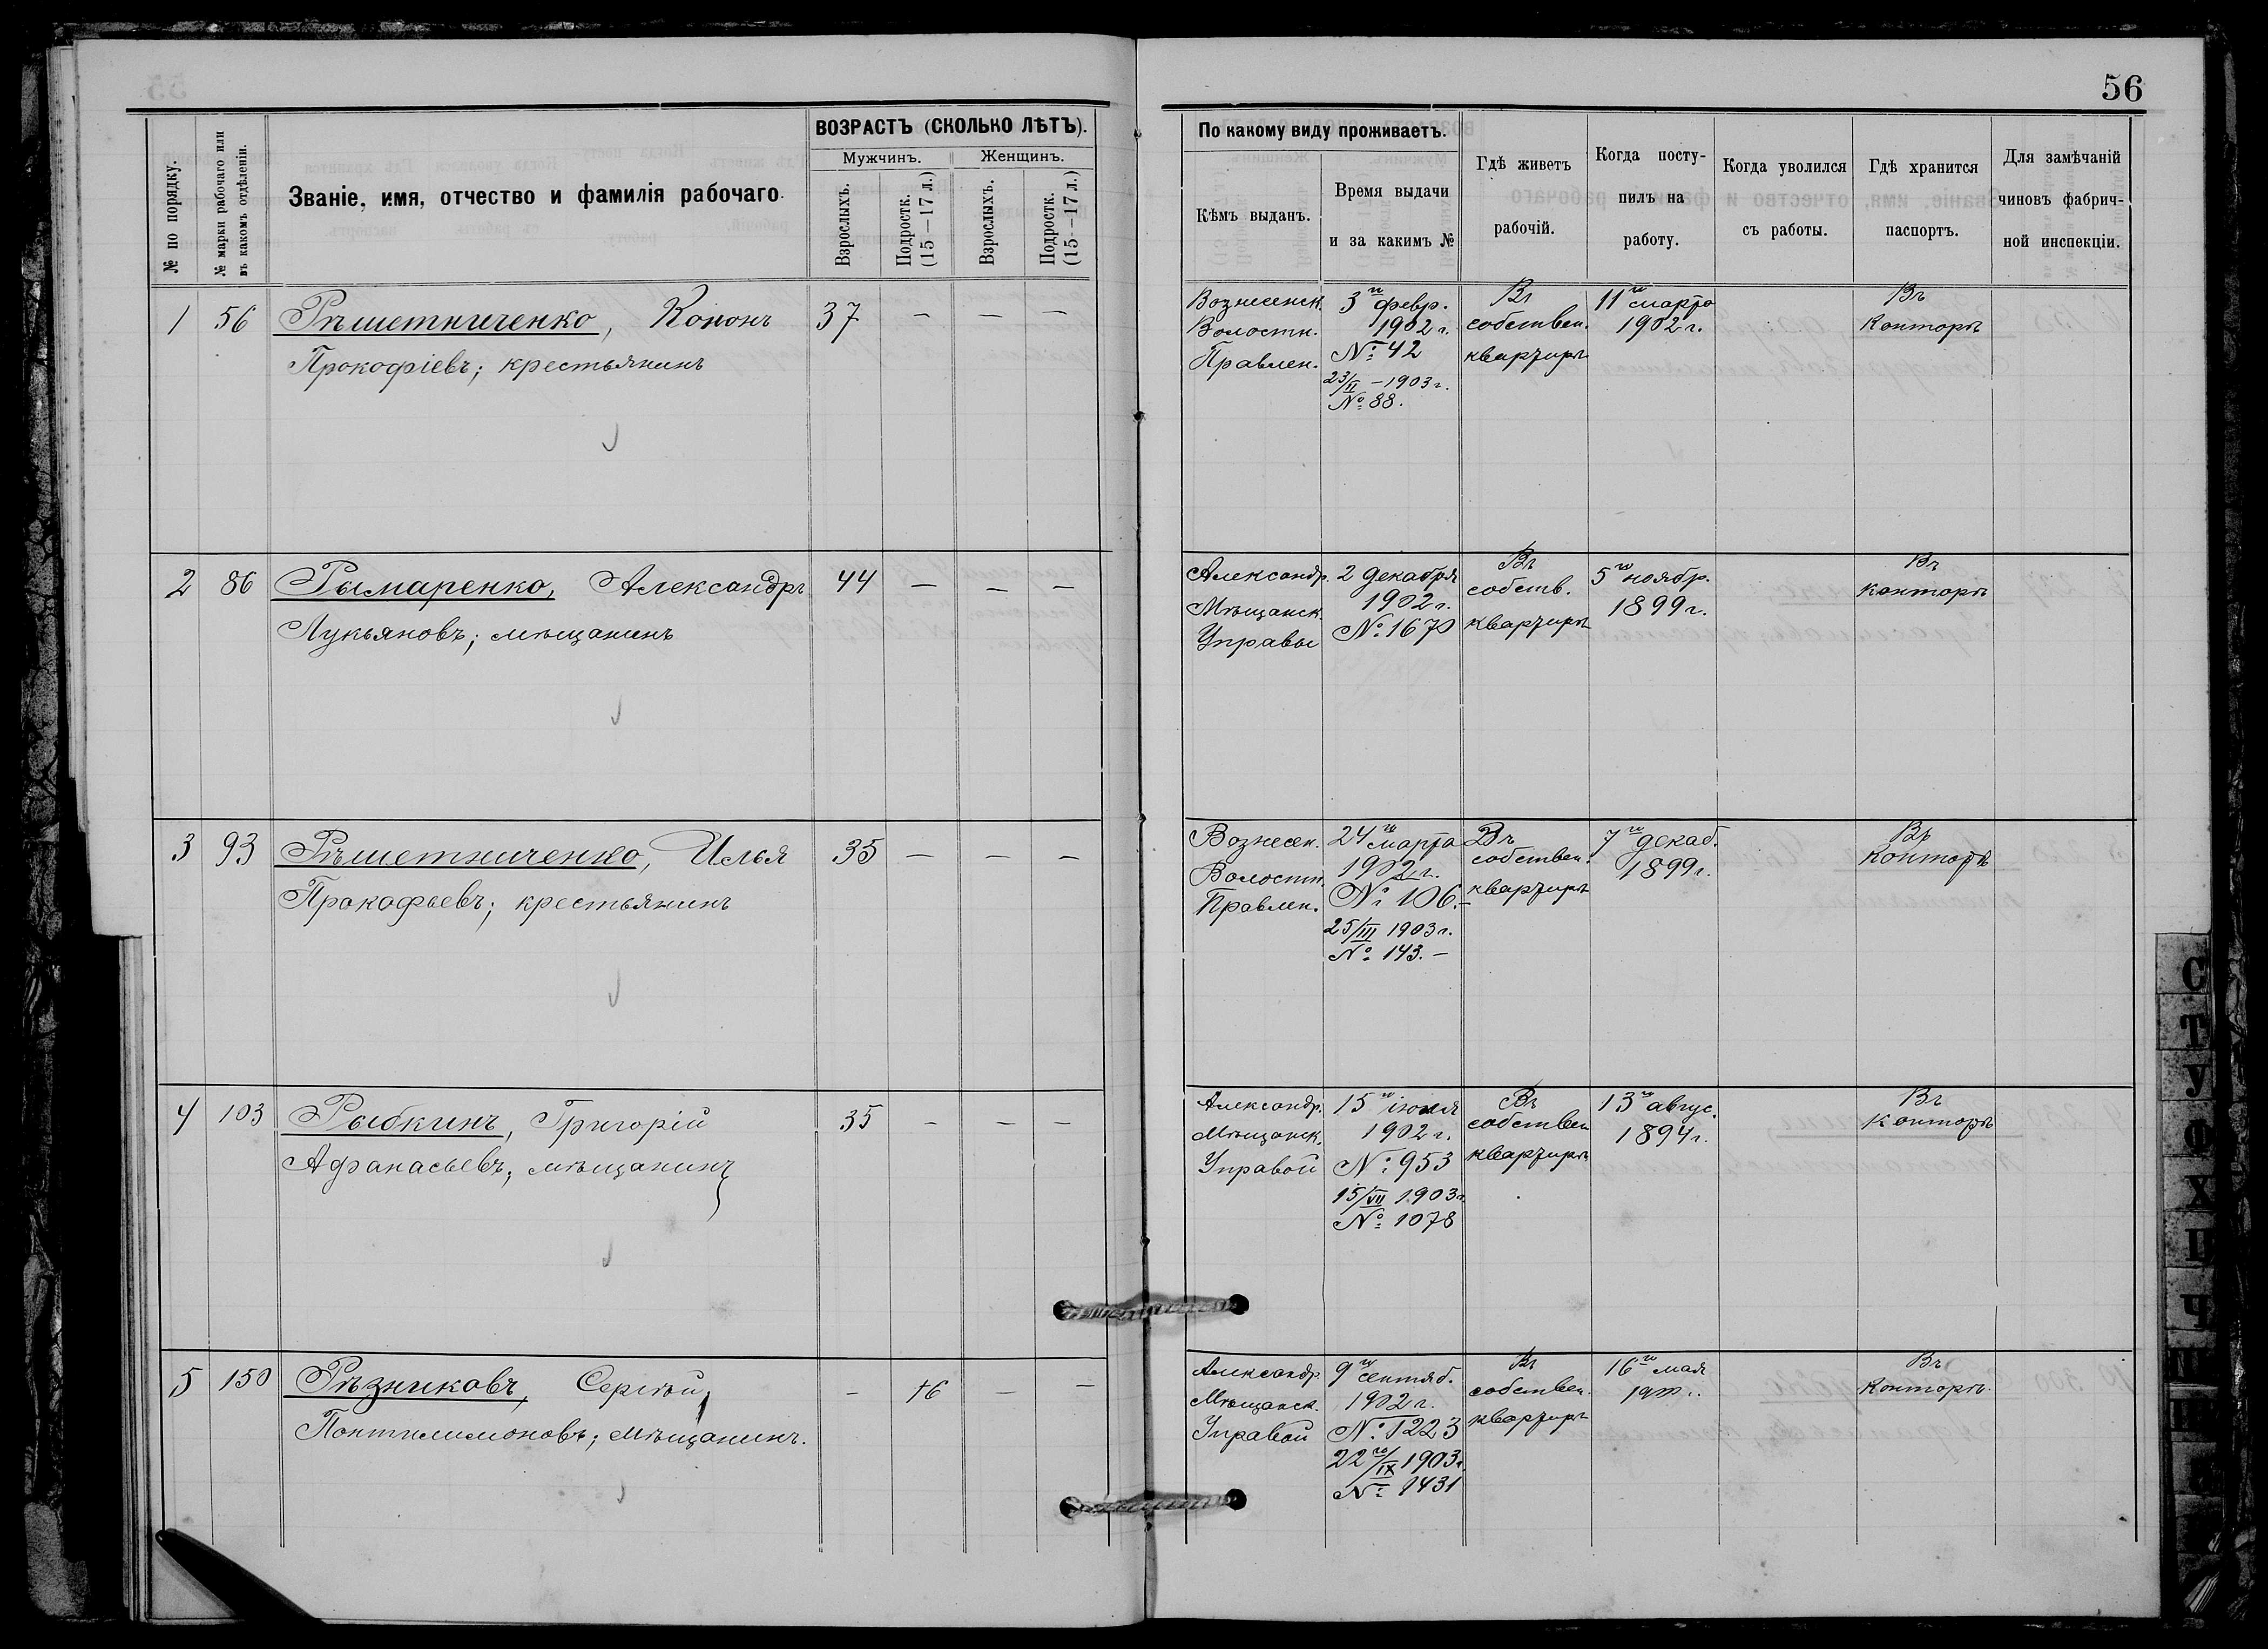 56
№ по порядку.
№ марки рабочаго или
въ какомъ отдѣленіи.
Званіе, имя, отчество и фамилія рабочаго.
ВОЗРАСТЪ (СКОЛЬКО ЛѢТЪ).
Мужчинъ.
Женщинъ.
Взрослыхъ.
Подростк.
(15—17 л.)
Взрослыхъ.
Подростк.
(15—17 л.)
По какому виду проживаетъ.
Кѣмъ выданъ.
Время выдачи
и за какимъ №
Гдѣ живетъ
рабочій.
Когда посту-
пилъ на
работу.
Когда уволился
съ работы.
Гдѣ хранится
паспортъ.
Для замѣчаній
чиновъ фабрич-
ной инспекціи.
1 56 Рѣшетниченко, Кононъ 37 — — —
Прокофіевъ; крестьянинъ
Вознесенск.
Волостн.
Правлен.
3го февр.
1902 г.
№ 42
23/II — 1903 г.
№ 88.
Въ
собствен.
квартирѣ
11го марта
1902 г.
Въ
Конторѣ
2 86 Рымаренко, Александръ 44 — — —
Лукьяновъ; мѣщанинъ
Александр.
Мѣщанск.
Управы
2 декабря
1902 г.
№ 1670
Въ
собств.
квартирѣ
5го ноябр.
1899 г.
Въ
конторѣ
3 93 Рѣшетниченко, Илья 35 — — —
Прокофьевъ; крестьянинъ
Вознесен.
Волостн.
Правлен.
24го марта
1902 г.
№ 106.—
25/III 1903 г.
№ 143.—
Въ
собствен.
квартирѣ
7го декаб.
1899 г.
Въ
Конторѣ
4 103 Рыбкинъ, Григорій 35 — — —
Афанасьевъ; мѣщанинъ
Александр.
Мѣщанск.
Управой
15го іюля
1902 г.
№ 953
15/VII 1903 г.
№ 1078
Въ
собствен
квартирѣ
13го авгус.
1894 г.
Въ
Конторѣ
5 150 Рѣзниковъ, Сергѣй, — 16 — —
Понтилимоновъ; мѣщанинъ.
Александр.
Мѣщанск.
Управой
9го сентяб.
1902 г.
№ 1223
22го/IX 1903 г.
№ 1431
Въ
собствен.
квартирѣ
16го мая
Въ
Конторѣ.
С
Т
У
Ф
Х
Ц
Ч